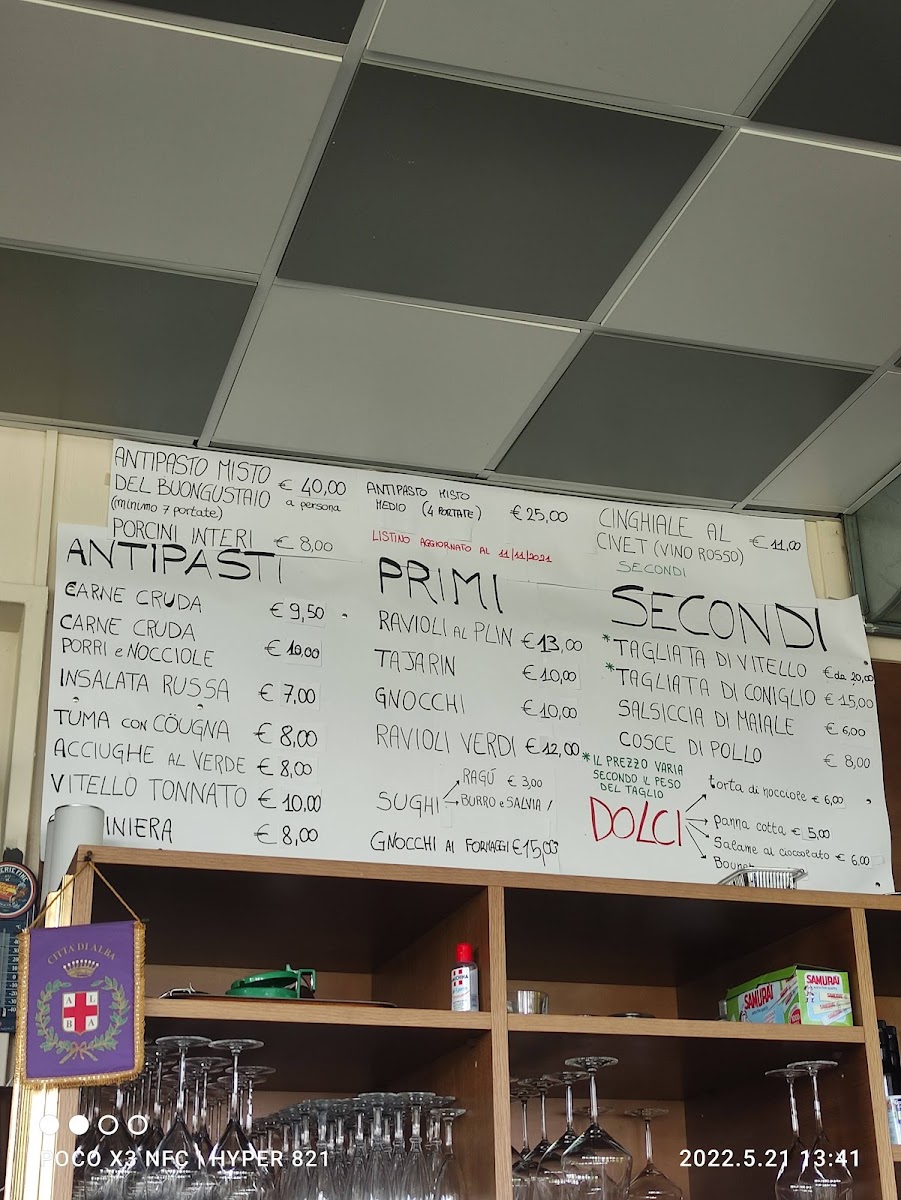 ANTIPASTO MISTO
DEL BUONGUSTAIO € 40,00
(minimo 7 portate) a persona
PORCINI INTERI € 8,00
ANTIPASTO MISTO
MEDIO (4 PORTATE) € 25,00
LISTINO AGGIORNATO AL 11/11/2021
CINGHIALE AL
CIVET (VINO ROSSO) € 11,00
SECONDI
ANTIPASTI
CARNE CRUDA € 9,50
CARNE CRUDA
PORRI e NOCCIOLE € 10.00
INSALATA RUSSA € 7,00
TUMA CON CÖUGNA € 8,00
ACCIUGHE AL VERDE € 8,00
VITELLO TONNATO € 10.00
INIERA € 8,00
PRIMI
RAVIOLI AL PLIN € 13,00
TAJARIN € 10,00
GNOCCHI € 10,00
RAVIOLI VERDI € 12,00
SUGHI
RAGÚ € 3,00
BURRO e SALVIA /
GNOCCHI AI FORMAGGI € 15,00
SECONDI
* TAGLIATA DI VITELLO € da 20,00
* TAGLIATA DI CONIGLIO € 15,00
SALSICCIA DI MAIALE € 6,00
COSCE DI POLLO € 8,00
* IL PREZZO VARIA
SECONDO IL PESO
DEL TAGLIO
DOLCI
torta di nocciole € 6,00
panna cotta € 5,00
Salame al cioccolato € 6.00
Bounet
CITTÀ DI ALBA
A L
B A
SAMURAI
SAMURAI
POCO X3 NFC | HYPER 821
2022.5.21 13:41